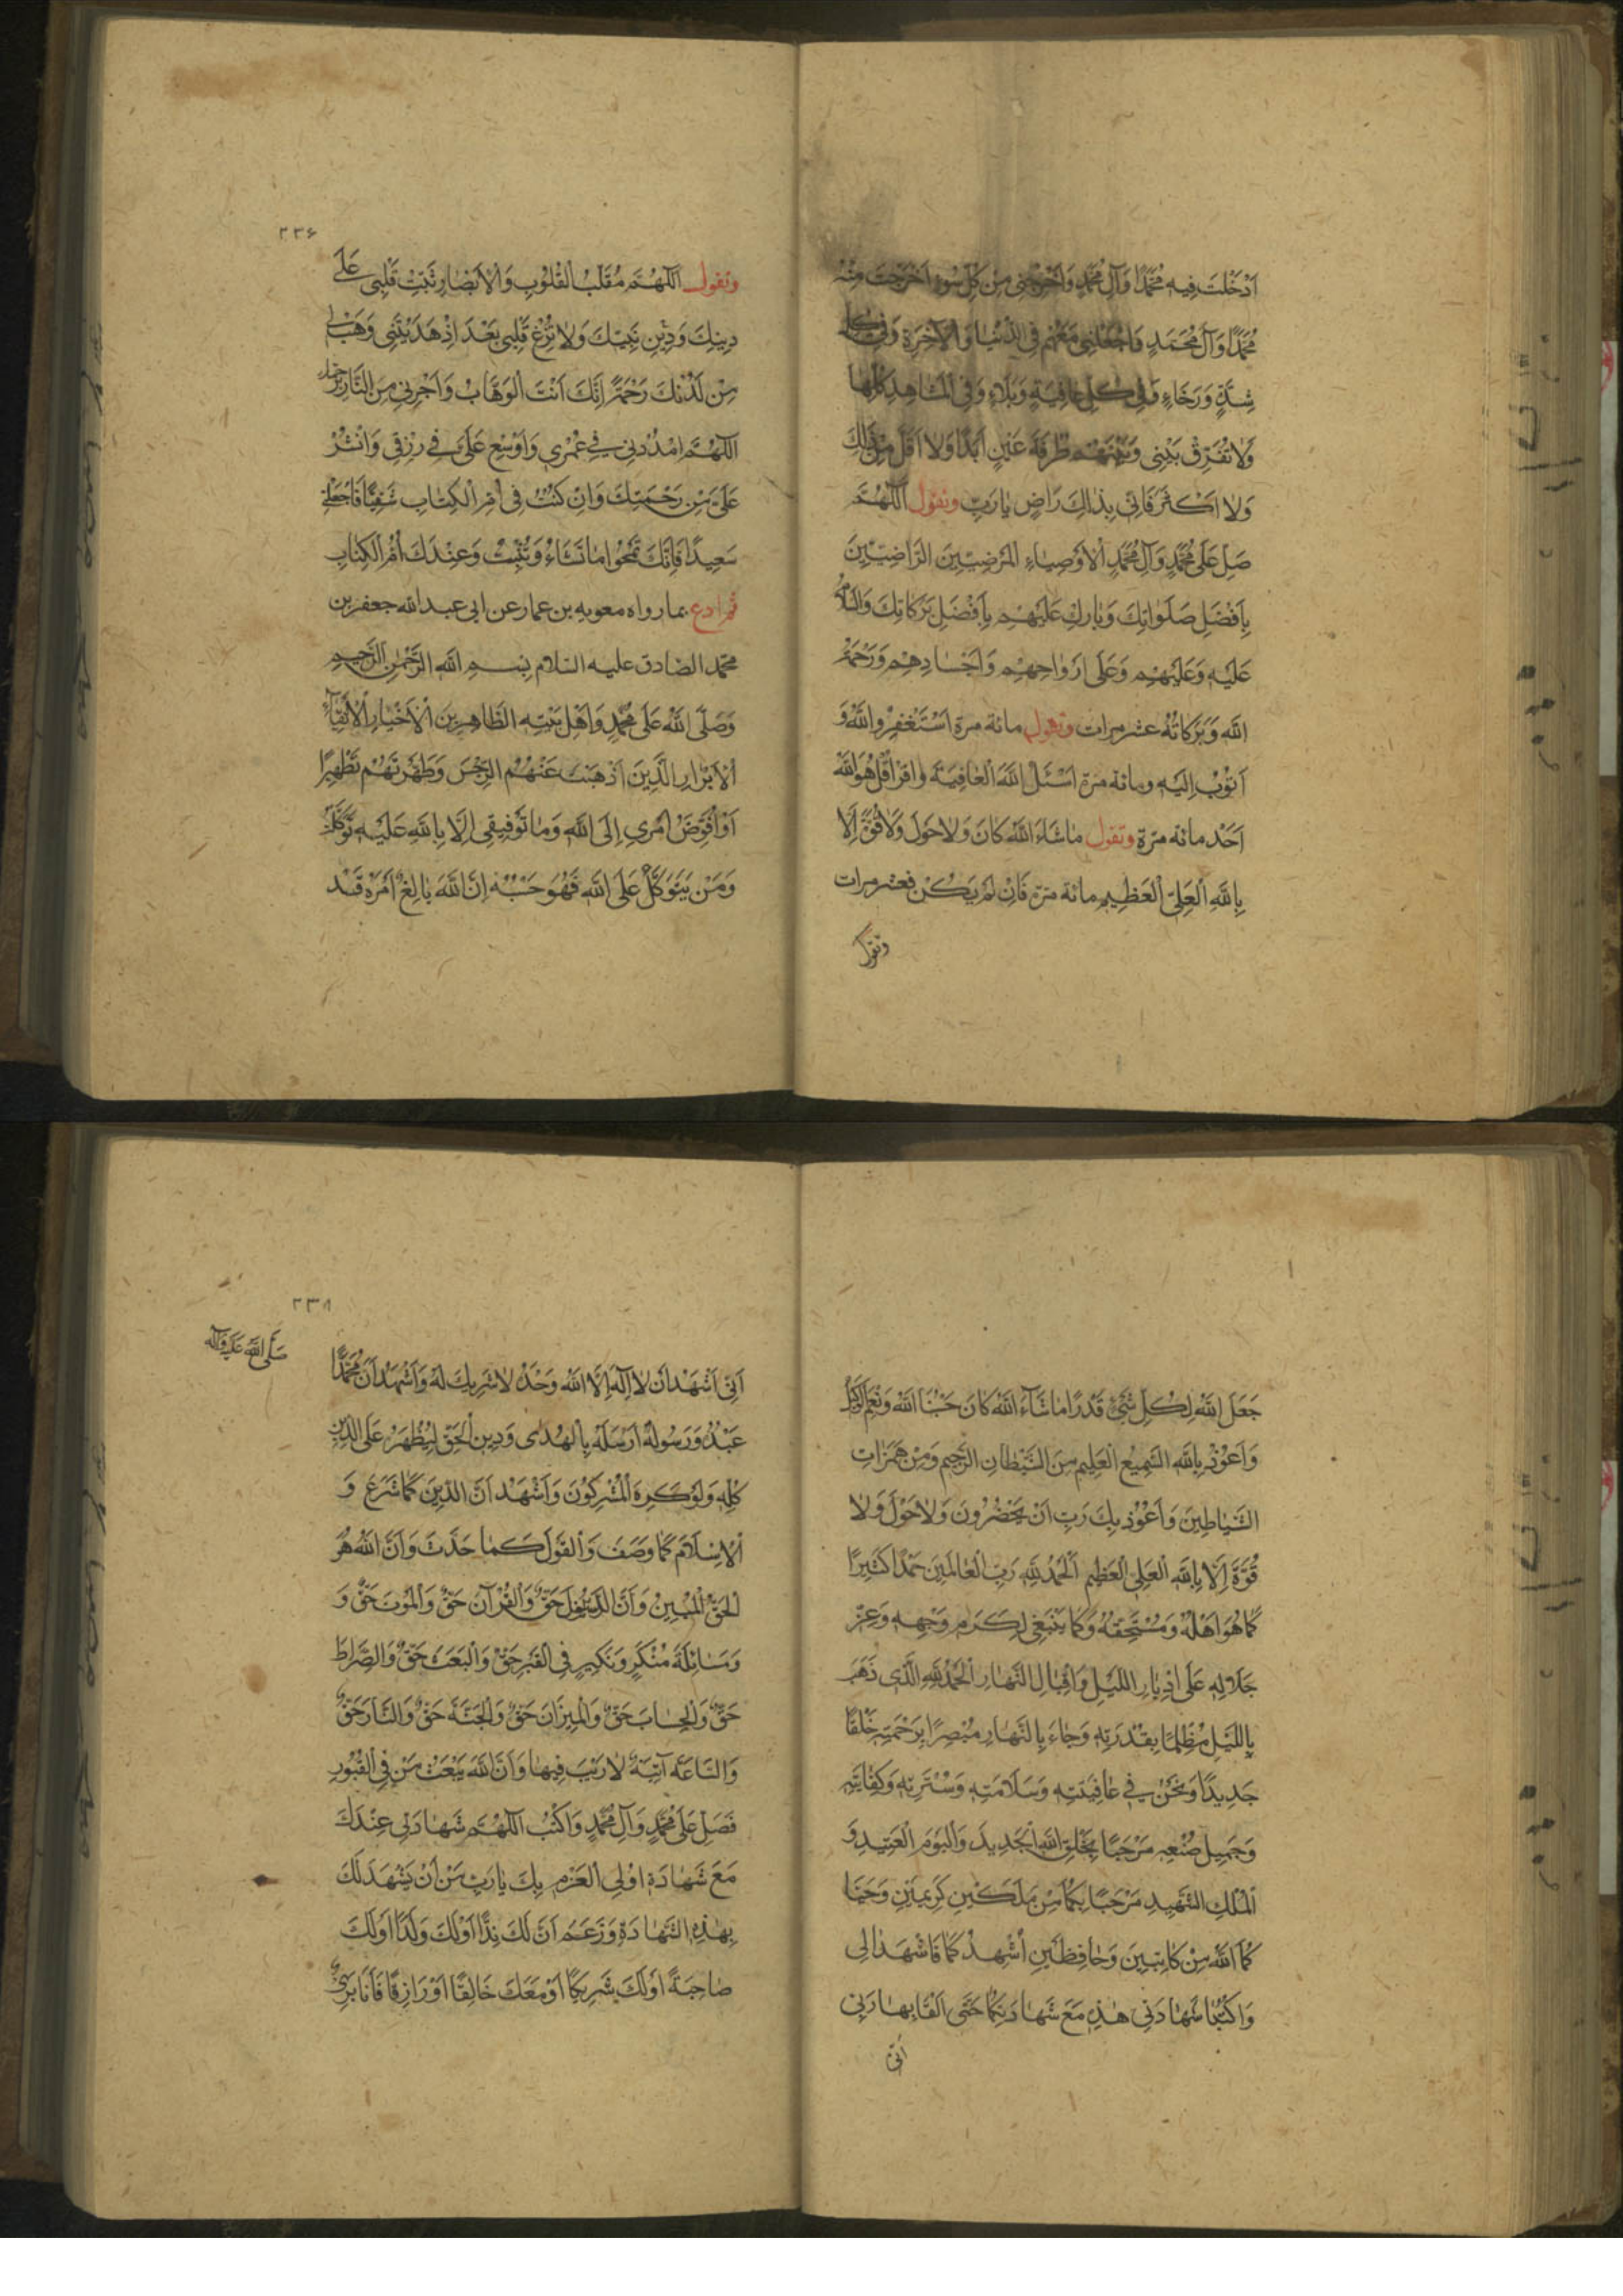 اَدْخَلْتَ فِيهِ مُحَمَّدًا وَآلَ مُحَمَّدٍ وَاَخْرِجْنِي مِنْ كُلِّ سُوءٍ اَخْرَجْتَ مِنْهُ
مُحَمَّدًا وَآلَ مُحَمَّدٍ وَاجْعَلْنِي مَعَهُمْ فِي الدُّنْيَا وَالْآخِرَةِ وَفِي كُلِّ
شِدَّةٍ وَرَخَاءٍ وَفِي كُلِّ عَافِيَةٍ وَبَلَاءٍ وَفِي الْمَشَاهِدِ كُلِّهَا
وَلَا تُفَرِّقْ بَيْنِي وَبَيْنَهُمْ طَرْفَةَ عَيْنٍ اَبَدًا وَلَا اَقَلَّ مِنْ ذٰلِكَ
وَلَا اَكْثَرَ فَاِنِّي بِذٰلِكَ رَاضٍ يَا رَبِّ وتقول اَللّٰهُمَّ
صَلِّ عَلَى مُحَمَّدٍ وَآلِ مُحَمَّدٍ الْاَوْصِيَاءِ الْمَرْضِيِّينَ الرَّاضِيِّينَ
بِاَفْضَلِ صَلَوَاتِكَ وَبَارِكْ عَلَيْهِمْ بِاَفْضَلِ بَرَكَاتِكَ وَالسَّلَامُ
عَلَيْهِ وَعَلَيْهِمْ وَعَلَى اَرْوَاحِهِمْ وَاَجْسَادِهِمْ وَرَحْمَةُ
اللّٰهِ وَبَرَكَاتُهُ عشر مرات وتقول مائة مرة اَسْتَغْفِرُ اللّٰهَ وَ
اَتُوبُ اِلَيْهِ ومائة مرة اَسْئَلُ اللّٰهَ الْعَافِيَةَ واقرأ قُلْ هُوَ اللّٰهُ
اَحَدٌ مائة مرة وتقول مَا شَاءَ اللّٰهُ كَانَ وَلَا حَوْلَ وَلَا قُوَّةَ اِلَّا
بِاللّٰهِ الْعَلِيِّ الْعَظِيمِ مائة مرة فَاِنْ لَمْ يَكُنْ فعشر مرات
وتقول
۲۳۶
وتقول اَللّٰهُمَّ مُقَلِّبَ الْقُلُوبِ وَالْاَبْصَارِ ثَبِّتْ قَلْبِي عَلَى
دِينِكَ وَدِينِ نَبِيِّكَ وَلَا تُزِغْ قَلْبِي بَعْدَ اِذْ هَدَيْتَنِي وَهَبْ لِي
مِنْ لَدُنْكَ رَحْمَةً اِنَّكَ اَنْتَ الْوَهَّابُ وَاَجِرْنِي مِنَ النَّارِ بِرَحْمَتِكَ
اَللّٰهُمَّ امْدُدْ لِي فِي عُمْرِي وَاَوْسِعْ عَلَيَّ فِي رِزْقِي وَانْشُرْ
عَلَيَّ مِنْ رَحْمَتِكَ وَاِنْ كُنْتُ فِي اُمِّ الْكِتَابِ شَقِيًّا فَاجْعَلْنِي
سَعِيدًا فَاِنَّكَ تَمْحُوا مَا تَشَاءُ وَتُثْبِتُ وَعِنْدَكَ اُمُّ الْكِتَابِ
ثم ادع بما رواه معوية بن عمار عن ابي عبد الله جعفر بن
محمد الصادق عليه السلام بِسْمِ اللّٰهِ الرَّحْمٰنِ الرَّحِيمِ
وَصَلَّى اللّٰهُ عَلَى مُحَمَّدٍ وَاَهْلِ بَيْتِهِ الطَّاهِرِينَ الْاَخْيَارِ الْاَتْقِيَاءِ
الْاَبْرَارِ الَّذِينَ اَذْهَبْتَ عَنْهُمُ الرِّجْسَ وَطَهَّرْتَهُمْ تَطْهِيرًا
اَوْ اُفَوِّضُ اَمْرِي اِلَى اللّٰهِ وَمَا تَوْفِيقِي اِلَّا بِاللّٰهِ عَلَيْهِ تَوَكَّلْتُ
وَمَنْ يَتَوَكَّلْ عَلَى اللّٰهِ فَهُوَ حَسْبُهُ اِنَّ اللّٰهَ بَالِغُ اَمْرِهِ قَدْ
جَعَلَ اللّٰهُ لِكُلِّ شَيْءٍ قَدْرًا مَا شَاءَ اللّٰهُ كَانَ حَسْبُنَا اللّٰهُ وَنِعْمَ الْوَكِيلُ
وَاَعُوذُ بِاللّٰهِ السَّمِيعِ الْعَلِيمِ مِنَ الشَّيْطَانِ الرَّجِيمِ وَمِنْ هَمَزَاتِ
الشَّيَاطِينِ وَاَعُوذُ بِكَ رَبِّ اَنْ يَحْضُرُونَ وَلَا حَوْلَ وَلَا
قُوَّةَ اِلَّا بِاللّٰهِ الْعَلِيِّ الْعَظِيمِ اَلْحَمْدُ لِلّٰهِ رَبِّ الْعَالَمِينَ حَمْدًا كَثِيرًا
كَمَا هُوَ اَهْلُهُ وَمُسْتَحِقُّهُ وَكَمَا يَنْبَغِي لِكَرَمِ وَجْهِهِ وَعِزِّ
جَلَالِهِ عَلَى اِدْبَارِ اللَّيْلِ وَاِقْبَالِ النَّهَارِ اَلْحَمْدُ لِلّٰهِ الَّذِي ذَهَبَ
بِاللَّيْلِ مُظْلِمًا بِقُدْرَتِهِ وَجَاءَ بِالنَّهَارِ مُبْصِرًا بِرَحْمَتِهِ خَلْقًا
جَدِيدًا وَنَحْنُ فِي عَافِيَتِهِ وَسَلَامَتِهِ وَسَتْرِهِ وَكِفَايَتِهِ
وَجَمِيلِ صُنْعِهِ مَرْحَبًا بِخَلْقِ اللّٰهِ الْجَدِيدِ وَالْيَوْمِ الْعَتِيدِ وَ
الْمَلَكِ الشَّهِيدِ مَرْحَبًا بِكُمَا مِنْ مَلَكَيْنِ كَرِيمَيْنِ وَحَيَّا
كُمَا اللّٰهُ مِنْ كَاتِبَيْنِ وَحَافِظَيْنِ اُشْهِدُكُمَا فَاشْهَدَا لِي
وَاكْتُبَا شَهَادَتِي هٰذِهِ مَعَ شَهَادَتِكُمَا حَتَّى اَلْقَا بِهَا رَبِّي
اَنِّي
۲۳۸
اَنِّي اَشْهَدُ اَنْ لَا اِلٰهَ اِلَّا اللّٰهُ وَحْدَهُ لَا شَرِيكَ لَهُ وَاَشْهَدُ اَنَّ مُحَمَّدًا
صَلَّى اللّٰهُ عَلَيْهِ وَآلِهِ
عَبْدُهُ وَرَسُولُهُ اَرْسَلَهُ بِالْهُدٰى وَدِينِ الْحَقِّ لِيُظْهِرَهُ عَلَى الدِّينِ
كُلِّهِ وَلَوْ كَرِهَ الْمُشْرِكُونَ وَاَشْهَدُ اَنَّ الدِّينَ كَمَا شَرَعَ وَ
الْاِسْلَامَ كَمَا وَصَفَ وَالْقَوْلَ كَمَا حَدَّثَ وَاَنَّ اللّٰهَ هُوَ
الْحَقُّ الْمُبِينُ وَاَنَّ الرَّسُولَ حَقٌّ وَالْقُرْآنَ حَقٌّ وَالْمَوْتَ حَقٌّ وَ
وَمَسَائِلَةَ مُنْكَرٍ وَنَكِيرٍ فِي الْقَبْرِ حَقٌّ وَالْبَعْثَ حَقٌّ وَالصِّرَاطَ
حَقٌّ وَالْحِسَابَ حَقٌّ وَالْمِيزَانَ حَقٌّ وَالْجَنَّةَ حَقٌّ وَالنَّارَ حَقٌّ
وَالسَّاعَةَ آتِيَةٌ لَا رَيْبَ فِيهَا وَاَنَّ اللّٰهَ يَبْعَثُ مَنْ فِي الْقُبُورِ
فَصَلِّ عَلَى مُحَمَّدٍ وَآلِ مُحَمَّدٍ وَاكْتُبِ اللّٰهُمَّ شَهَادَتِي عِنْدَكَ
مَعَ شَهَادَةِ اُولِي الْعَزْمِ بِكَ يَا رَبِّ مَنْ اَنْ يَشْهَدَ لَكَ
بِهٰذِهِ الشَّهَادَةِ وَزَعَمَ اَنَّ لَكَ نِدًّا اَوْ لَكَ وَلَدًا اَوْ لَكَ
صَاحِبَةً اَوْ لَكَ شَرِيكًا اَوْ مَعَكَ خَالِقًا اَوْ رَازِقًا فَاَنَا بَرِيءٌ